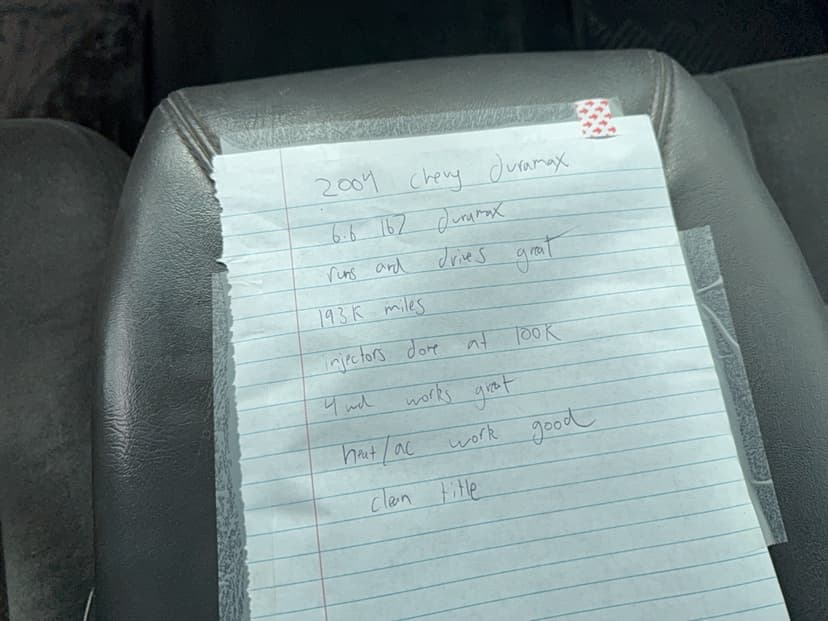 2004 Chevy duramax
6.6 lb7 duramax
runs and drives great
193K miles
injectors done at 100K
4wd works great
heat/ac work good
clean title